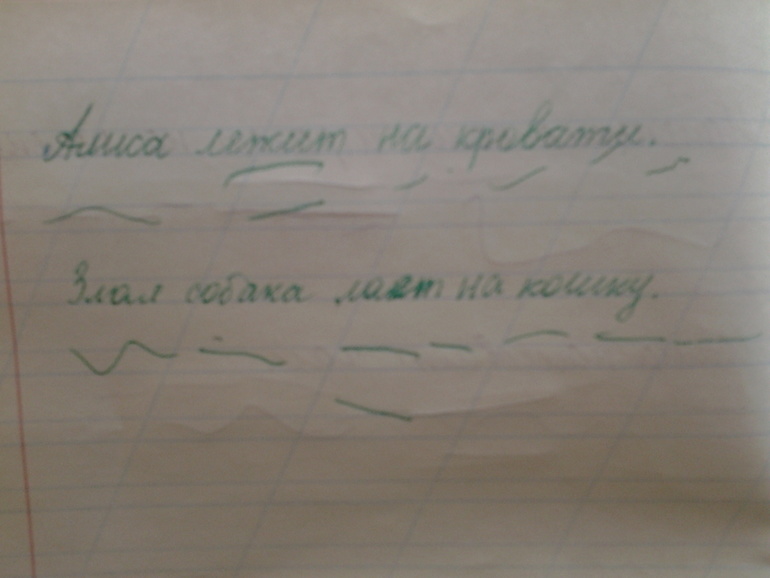 Алиса лежит на кровати.
Злая собака лает на кошку.